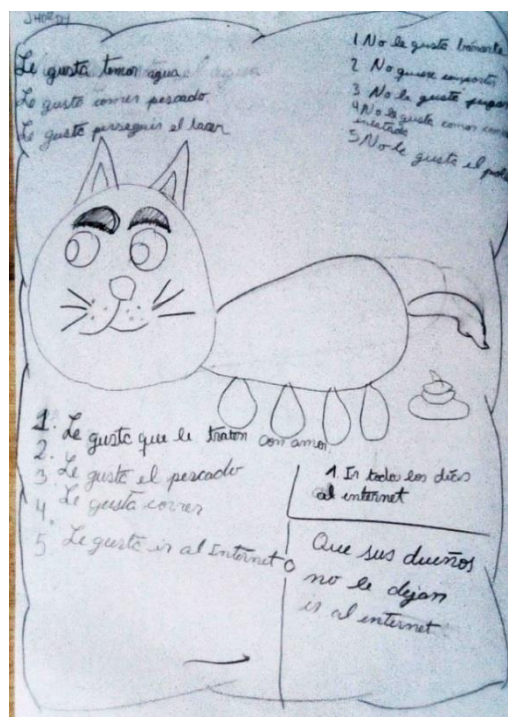 JHORDY
Le gusta tomar agua
Le gusta comer pescado
Le gusta perseguir el lacer
1 No le gusta
2 No quiere
3 No le gusta
4 No le gusta comer
enlatada
5 No le gusta el
1. Le gusta que le traten con amor
2.
3 Le gusta el pescado
4 Le gusta correr
5 Le gusta ir al Internet
1 Ir todos los dias
al internet
Que sus dueños
no le dejan
ir al internet